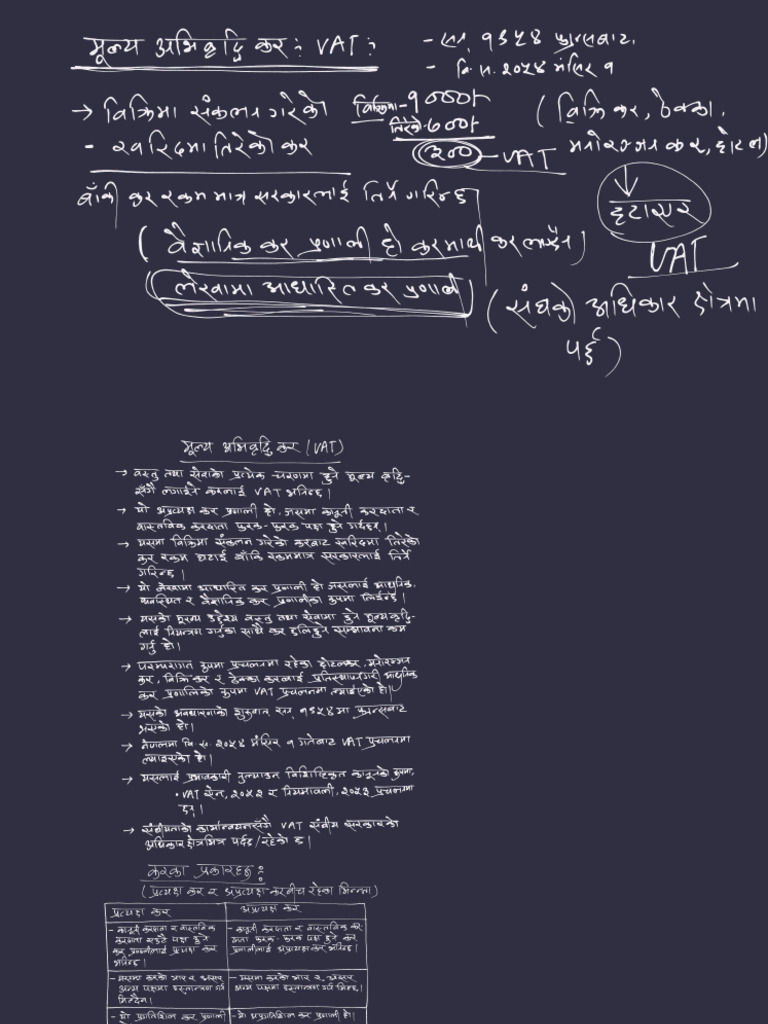 मूल्य अभिवृद्धि कर : VAT :
- सन् १९५४ फ्रान्सबाट
- वि.सं. २०५४ मंसिर १
→ विक्रिमा संकलन गरेको
- खरिदमा तिरेको कर
विक्रिमा - १००००
तिरेको - ७०००
३०० - VAT
(विक्रि कर, ठेक्का,
मनोरञ्जन कर, होटल)
हटाएर
VAT
बाँकी कर रकम मात्र सरकारलाई तिर्ने गरिन्छ
(वैज्ञानिक कर प्रणाली हो करमाथी कर लाग्दैन)
(लेखामा आधारित कर प्रणाली)
(संघको अधिकार क्षेत्रमा
पर्छ)
मूल्य अभिवृद्धि कर (VAT)
→ वस्तु तथा सेवाको प्रत्येक चरणमा हुने मूल्य वृद्धि-
सँगै लगाईने करलाई VAT भनिन्छ।
→ यो अप्रत्यक्ष कर प्रणाली हो, जसमा कानूनी करदाता र
वास्तविक करदाता फरक-फरक पक्ष हुने गर्दछन्।
→ यसमा विक्रिमा संकलन गरेको करबाट खरिदमा तिरेको
कर रकम घटाई बाँकि रकममात्र सरकारलाई तिर्ने
गरिन्छ।
→ यो लेखामा आधारित कर प्रणाली हो जसलाई आधुनिक,
व्यवस्थित र वैज्ञानिक कर प्रणालीका रुपमा लिईन्छ।
→ यसको मूख्य उद्देश्य वस्तु तथा सेवामा हुने मूल्यवृद्धि-
लाई नियन्त्रण गर्नुका साथै कर छलिहुने सम्भावना कम
गर्नु हो।
→ परम्परागत रुपमा प्रचलनमा रहेका होटलकर, मनोरञ्जन
कर, विक्रि कर र ठेक्का करलाई प्रतिस्थापन गरी आधुनिक
कर प्रणालिको रुपमा VAT प्रचलनमा ल्याईएको हो।
→ यसको अवधारणाको शुरुवात सन् १९५४ मा फ्रान्सबाट
भएको हो।
→ नेपालमा वि.सं. २०५४ मंसिर १ गतेबाट VAT प्रचलनमा
ल्याइएको हो।
→ यसलाई प्रभावकारी तुल्याउन विशिष्टिकृत कानूनको रुपमा,
• VAT ऐन, २०५२ र नियमावली, २०५३ प्रचलनमा
छन्।
→ संघीयताको कार्यान्वयनसँगै VAT संघीय सरकारको
अधिकार क्षेत्रभित्र पर्दछ/रहेको छ।
करका प्रकारहरु :
(प्रत्यक्ष कर र अप्रत्यक्ष करबीच रहेका भिन्नता)
प्रत्यक्ष कर
अप्रत्यक्ष कर
- कानूनी करदाता र वास्तविक
करदाता एउटै पक्ष हुने
कर प्रणालीलाई प्रत्यक्ष कर
भनिन्छ।
- कानूनी करदाता र वास्तविक कर
दाता फरक-फरक पक्ष हुने कर
प्रणालीलाई अप्रत्यक्ष कर भनिन्छ।
- यसमा करको भार र असर
अन्य पक्षमा हस्तान्तरण गर्न
मिल्दैन।
- यसमा करको भार र असर
अन्य पक्षमा हस्तान्तरण गर्न मिल्छ।
- यो प्रगतिशिल कर प्रणाली
- यो अप्रगतिशिल कर प्रणाली हो।